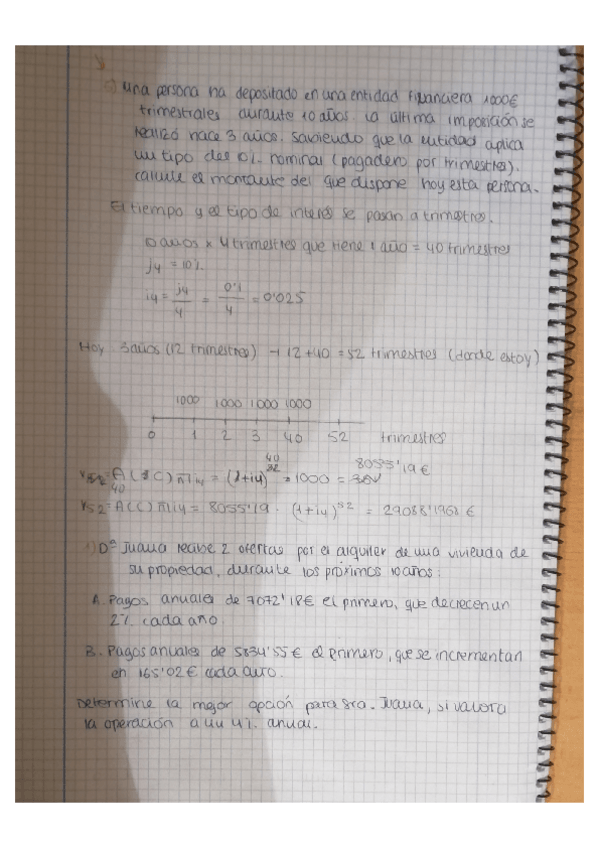 una persona ha depositado en una entidad financiera 1000€
trimestrales durante 10 años. La última imposición se
realizó hace 3 años. Sabiendo que la entidad aplica
un tipo del 10%. nominal (pagadero por trimestres).
calcule el montante del que dispone hoy esta persona.
El tiempo y el tipo de interés se pasan a trimestres.
10 años x 4 trimestres que tiene 1 año = 40 trimestres
j4 = 10%
i4 = j4/4 = 0'1/4 = 0'025
Hoy 3 años (12 trimestres) → 12+40 = 52 trimestres (donde estoy)
1000 1000 1000 1000
0 1 2 3 40 52 trimestres
= (1+i4)^40 = 1000 = 8055'19 €
V52 = A(C) n i4 = 8055'19 · (1+i4)^52 = 29088'1968 €
1) Dª Juana recibe 2 ofertas por el alquiler de una vivienda de
su propiedad, durante los próximos 10 años:
A. Pagos anuales de 7072'18€ el primero, que decrecen un
2% cada año.
B. Pagos anuales de 5834'55€ el primero, que se incrementan
en 165'02€ cada año.
Determine la mejor opción para Sra. Juana, si valora
la operación a un 4% anual.